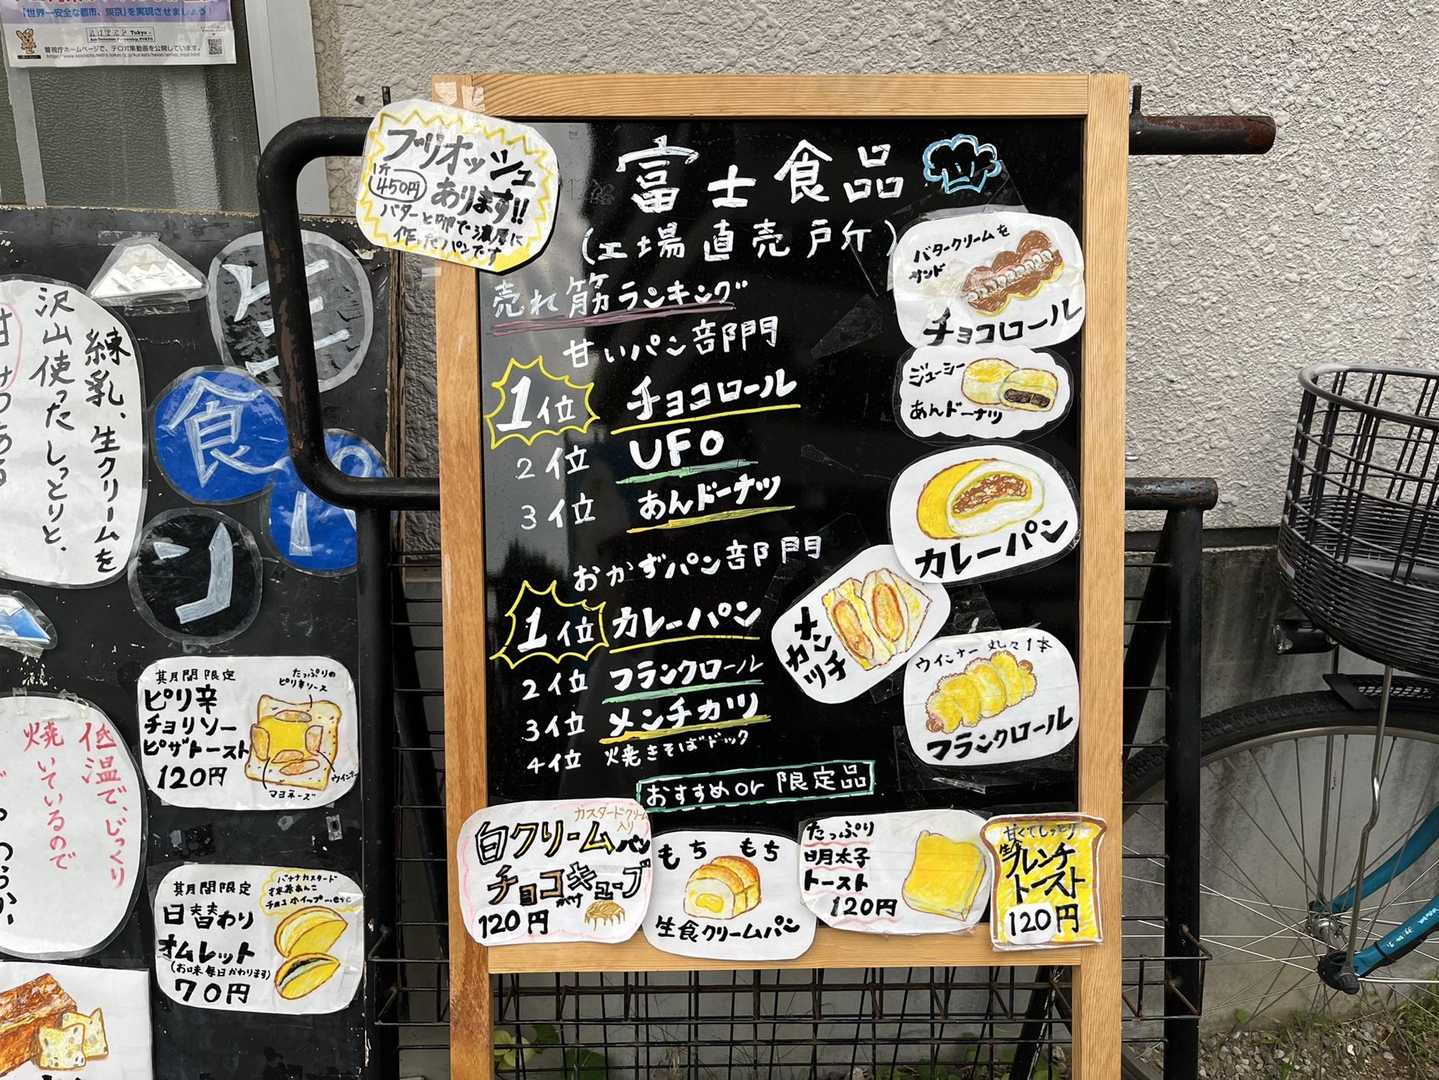 「世界一安全な都市、東京」を実現させましょう
警視庁ホームページで、テロ対策動画を公開しています。
ブリオッシュ
あります!!
1ケ
450円
バターと卵で濃厚に
作ったパンです
富士食品
(工場直売所)
売れ筋ランキング
甘いパン部門
1位 チョコロール
2位 UFO
3位 あんドーナツ
おかずパン部門
1位 カレーパン
2位 フランクロール
3位 メンチカツ
4位 焼きそばドック
おすすめor限定品
バタークリームを
サンド
チョコロール
ジューシー
あんドーナツ
カレーパン
メンチ
カツ
ウインナー丸々1本
フランクロール
カスタードクリーム
入り
白クリームパン
チョコがけキューブ
120円
もちもち
生食クリームパン
たっぷり
明太子
トースト
120円
甘くてしっとり
生食
フレンチ
トースト
120円
生
食
パン
練乳、生クリームを
沢山使ったしっとりと、
低温で、じっくり
焼いているので
某月間限定
ピリ辛
チョリソー
ピザトースト
120円
たっぷりの
ピリ辛ソース
ウインナー
マヨネーズ
某月間限定
日替わり
オムレット
(お味毎日かわります)
70円
バナナカスタード
抹茶あんこ
チョコホイップ...etc